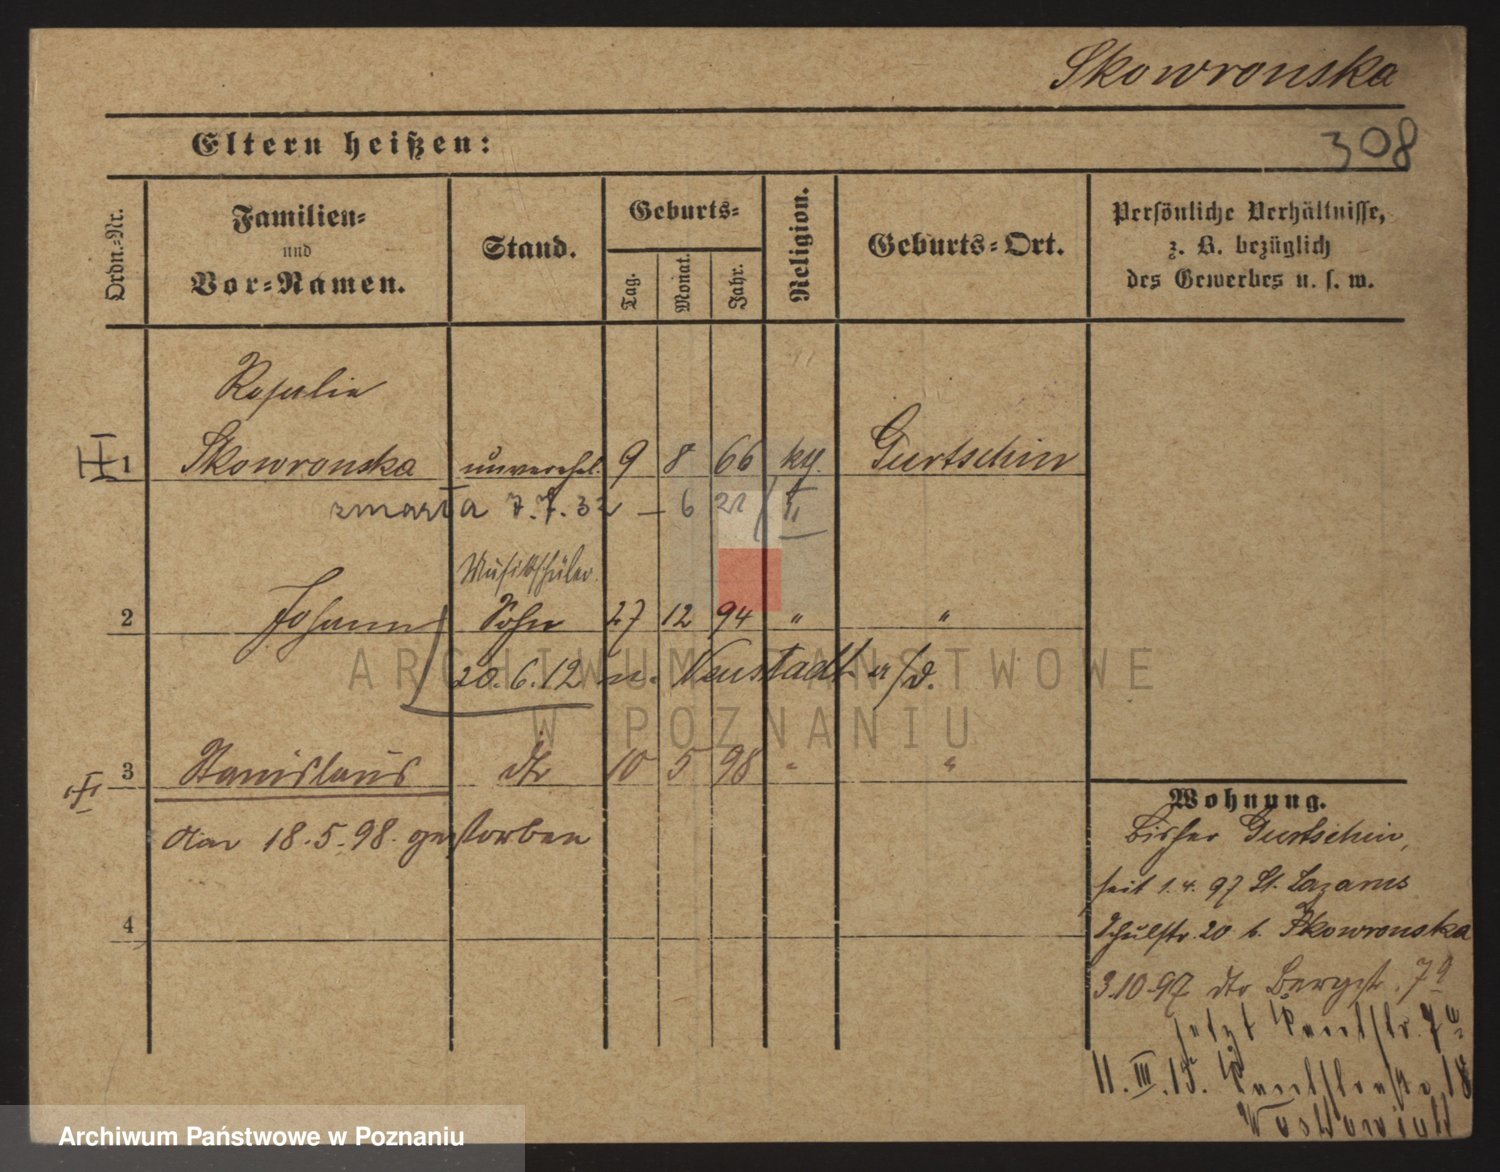 Skowronska
Eltern heißen:
308
Ordn.-Nr.
Familien-
und
Vor-Namen.
Stand.
Geburts-
Tag.
Monat.
Jahr.
Religion.
Geburts-Ort.
Persönliche Verhältnisse,
z. B. bezüglich
des Gewerbes u. s. w.
Rosalie
1 Skowronska unverehel. 9 8 66 kth. Gurtschin
zmarła 7.7.32 — 6 21/II
Musikschüler
2 Johann Sohn 27 12 94 " "
20.6.12 n. Neustadt a/d.
3 Stanislaus dto 10 5 98 " "
am 18.5.98. gestorben
4
Wohnung.
Bisher Gurtschin,
seit 1.4.97 St. Lazarus
Schulstr. 20 b. Skowronska
3.10.97 dto Bergstr. 7a
jetzt 7a
11.III.15. 18
ARCHIWUM PAŃSTWOWE
W POZNANIU
Archiwum Państwowe w Poznaniu